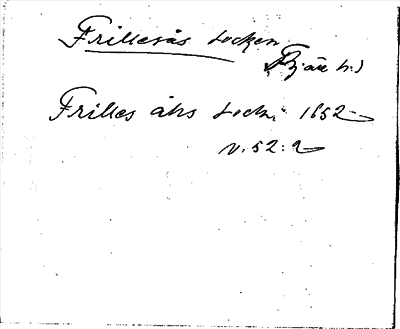 Frillesås socken
Fjäre h:d
Frilles åhs Sockn 1652
v. 52:2